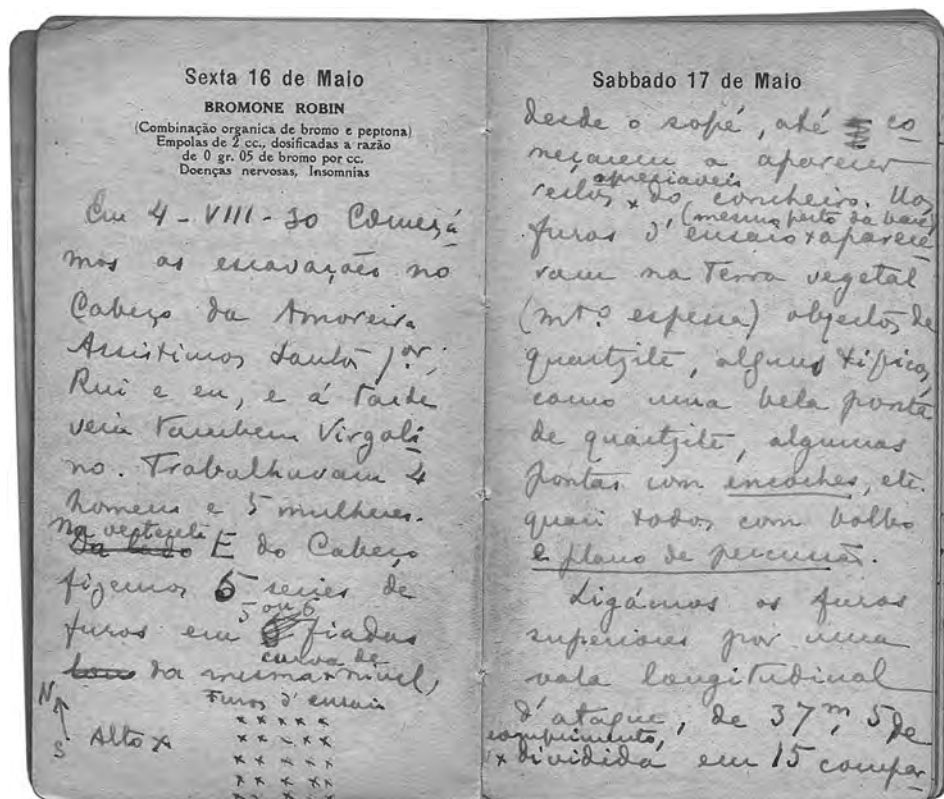 Sexta 16 de Maio
BROMONE ROBIN
(Combinação organica de bromo e peptona)
Empolas de 2 cc., dosificadas a razão
de 0 gr. 05 de bromo por cc.
Doenças nervosas, Insomnias
Em 4-VIII-30 Começá
mos as escavações no
Cabeço da Amoreira
Assistimos Santos Jor,
Rui e eu, e á tarde
veiu tambem Virgoli
no. Trabalhavam 4
homens e 5 mulheres.
Na vertente
Da lado E do Cabeço
fizemos 6 series de
5 ou 6
furos em fiadas
curva de
da mesma x nivel,
Furos d'ensaio
N
S
Alto x
x x x x x
x x x x x
x x x x x
x x x x x
x x x x x
Sabbado 17 de Maio
desde o sopé, até co
meçarem a aparecer
apreciaveis
restos x do concheiro. Nos
(mesmo perto da base)
furos d'ensaio x aparecê
ram na terra vegetal
(mto espessa) objectos de
quartzite, alguns tipicos,
como uma bela ponta
de quartzite, algumas
pontas com encoches, etc.
quasi todos com bolbo
e plano de percussão.
Ligámos os furos
superiores por uma
vala longitudinal
d'ataque, de 37m,5 de
comprimento,
x dividida em 15 compar